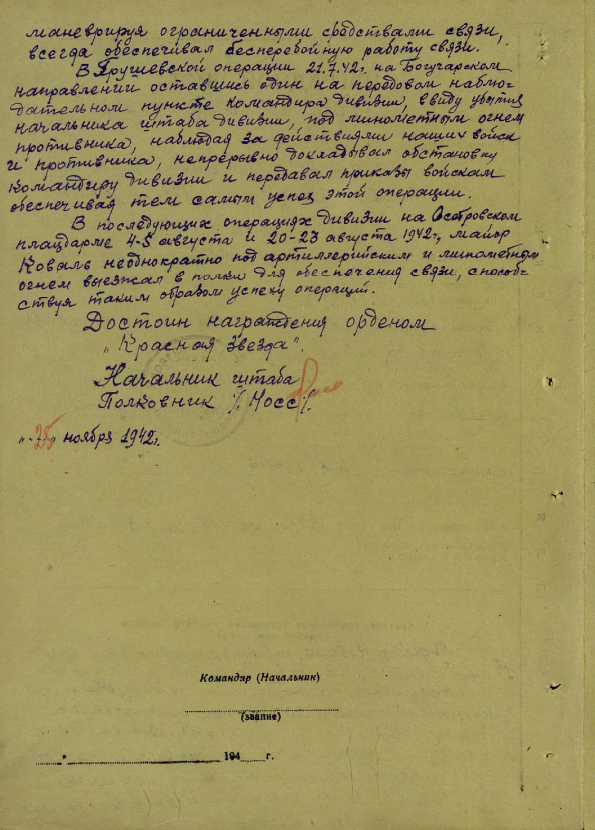 маневрируя ограниченными средствами связи,
всегда обеспечивал бесперебойную работу связи.
В Ярушевской операции 21.7.42г. на Богучарском
направлении оставшись один на передовом наблю-
дательном пункте командира дивизии, ввиду убытия
начальника штаба дивизии, под минометным огнем
противника, наблюдая за действиями наших войск
и противника, непрерывно докладывал обстановку
командиру дивизии и передавал приказы войскам
обеспечивая тем самым успех этой операции.
В последующих операциях дивизии на Осетровском
плацдарме 4-5 августа и 20-23 августа 1942г, майор
Коваль неоднократно под артиллерийским и минометным
огнем выезжал в полки для обеспечения связи, способ-
ствуя таким образом успеху операций.
Достоин награждения орденом
„Красная звезда".
Начальник штаба
Полковник /Мосс/.
"25" ноября 1942г.
Командир (Начальник)
(звание)
194 г.